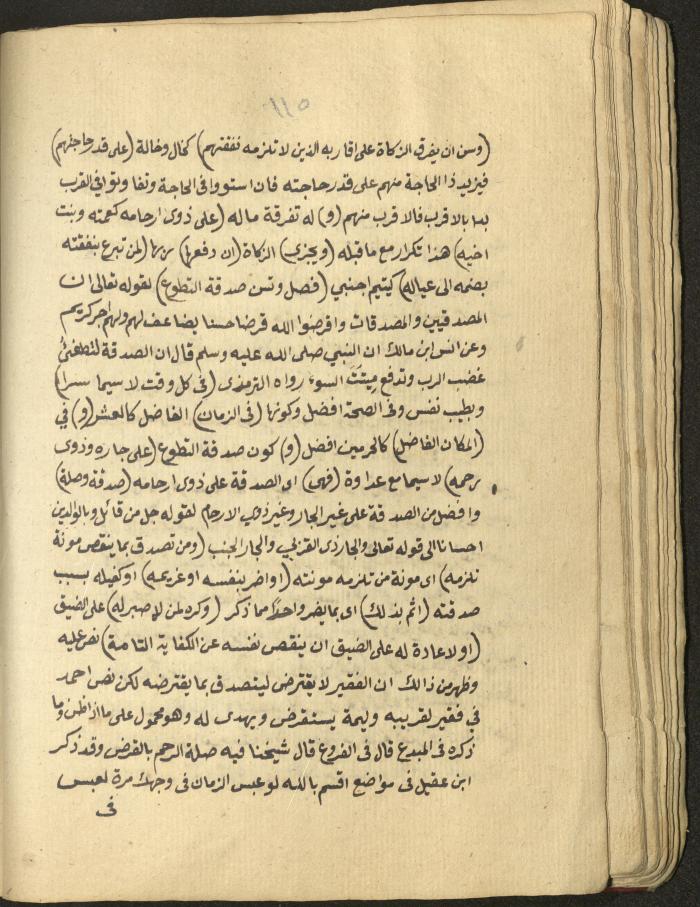 ١١٥
(وسن ان يفرق الزكاة على اقاربه الذين لا تلزمه نفقتهم) كخال وخالة (على قدر حاجتهم)
فيزيد ذا الحاجة منهم على قدر حاجته فان استووا في الحاجة وتفاوتوا في القرب
بدا بالاقرب فالاقرب منهم (و) له تفرقة ماله (على ذوى ارحامه كعمته وبنت
اخيه) هذا تكرار مع ما قبله (ويجزى) الزكاة (ان دفعها) ربها (لمن تبرع بنفقته
بضمه الى عياله) كيتيم اجنبي (فصل وتسن صدقة التطوع) لقوله تعالى ان
المصدقين والمصدقات واقرضوا الله قرضا حسنا يضاعف لهم ولهم اجر كريم
وعن انس ابن مالك ان النبي صلى الله عليه وسلم قال ان الصدقة لتطفئ
غضب الرب وتدفع ميتت السوء رواه الترمذى (فى كل وقت لا سيما سرا)
وبطيب نفس وفى الصحة افضل وكونها (فى الزمان) الفاضل كالعشر (و) في
(المكان الفاضل) كالحرمين افضل (و) كون صدقة التطوع (على جاره وذوى
رحمه) لا سيما مع عداوة (فهى) اى الصدقة على ذوى ارحامه (صدقة وصلة)
وافضل من الصدقة على غير الجار وغير ذوي الارحام لقوله جل من قائل وبالوالدين
احسانا الى قوله تعالى والجار ذى القربى والجار الجنب (ومن تصدق بما ينقص مونة
تلزمه) اى مونة من تلزمه مونته (او اضر بنفسه او غريمه) او كفيله بسبب
صدقته (اثم بذلك) اى بما يضر واحدا مما ذكر (وكره لمن لا صبر له) على الضيق
(او لا عادة له على الضيق ان ينقص نفسه عن الكفاية التامة) نص عليه
وظهر من ذالك ان الفقير لا يقترض ليتصدق بما يقترضه لكن نص احمد
في فقير لقريبه وليمة يستقرض ويهدى له وهو محمول على ما اذا ظن وفا
ذكره فى المبدع قال فى الفروع قال شيخنا فيه صلة الرحم بالقرض وقد ذكر
ابن عقيل فى مواضع اقسم بالله لو عبس الزمان فى وجهك مرة لعبس
فى